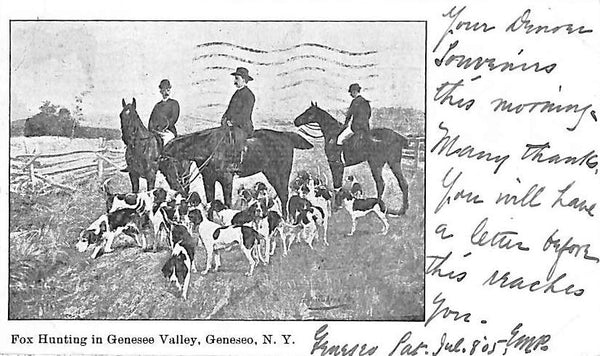 Your Denver
Souvenirs
this morning.
Many thanks.
You will have
a letter before
this reaches
you.
Fox Hunting in Genesee Valley, Geneseo, N. Y.
Geneseo Sat. Jul. 8 '05 EMR